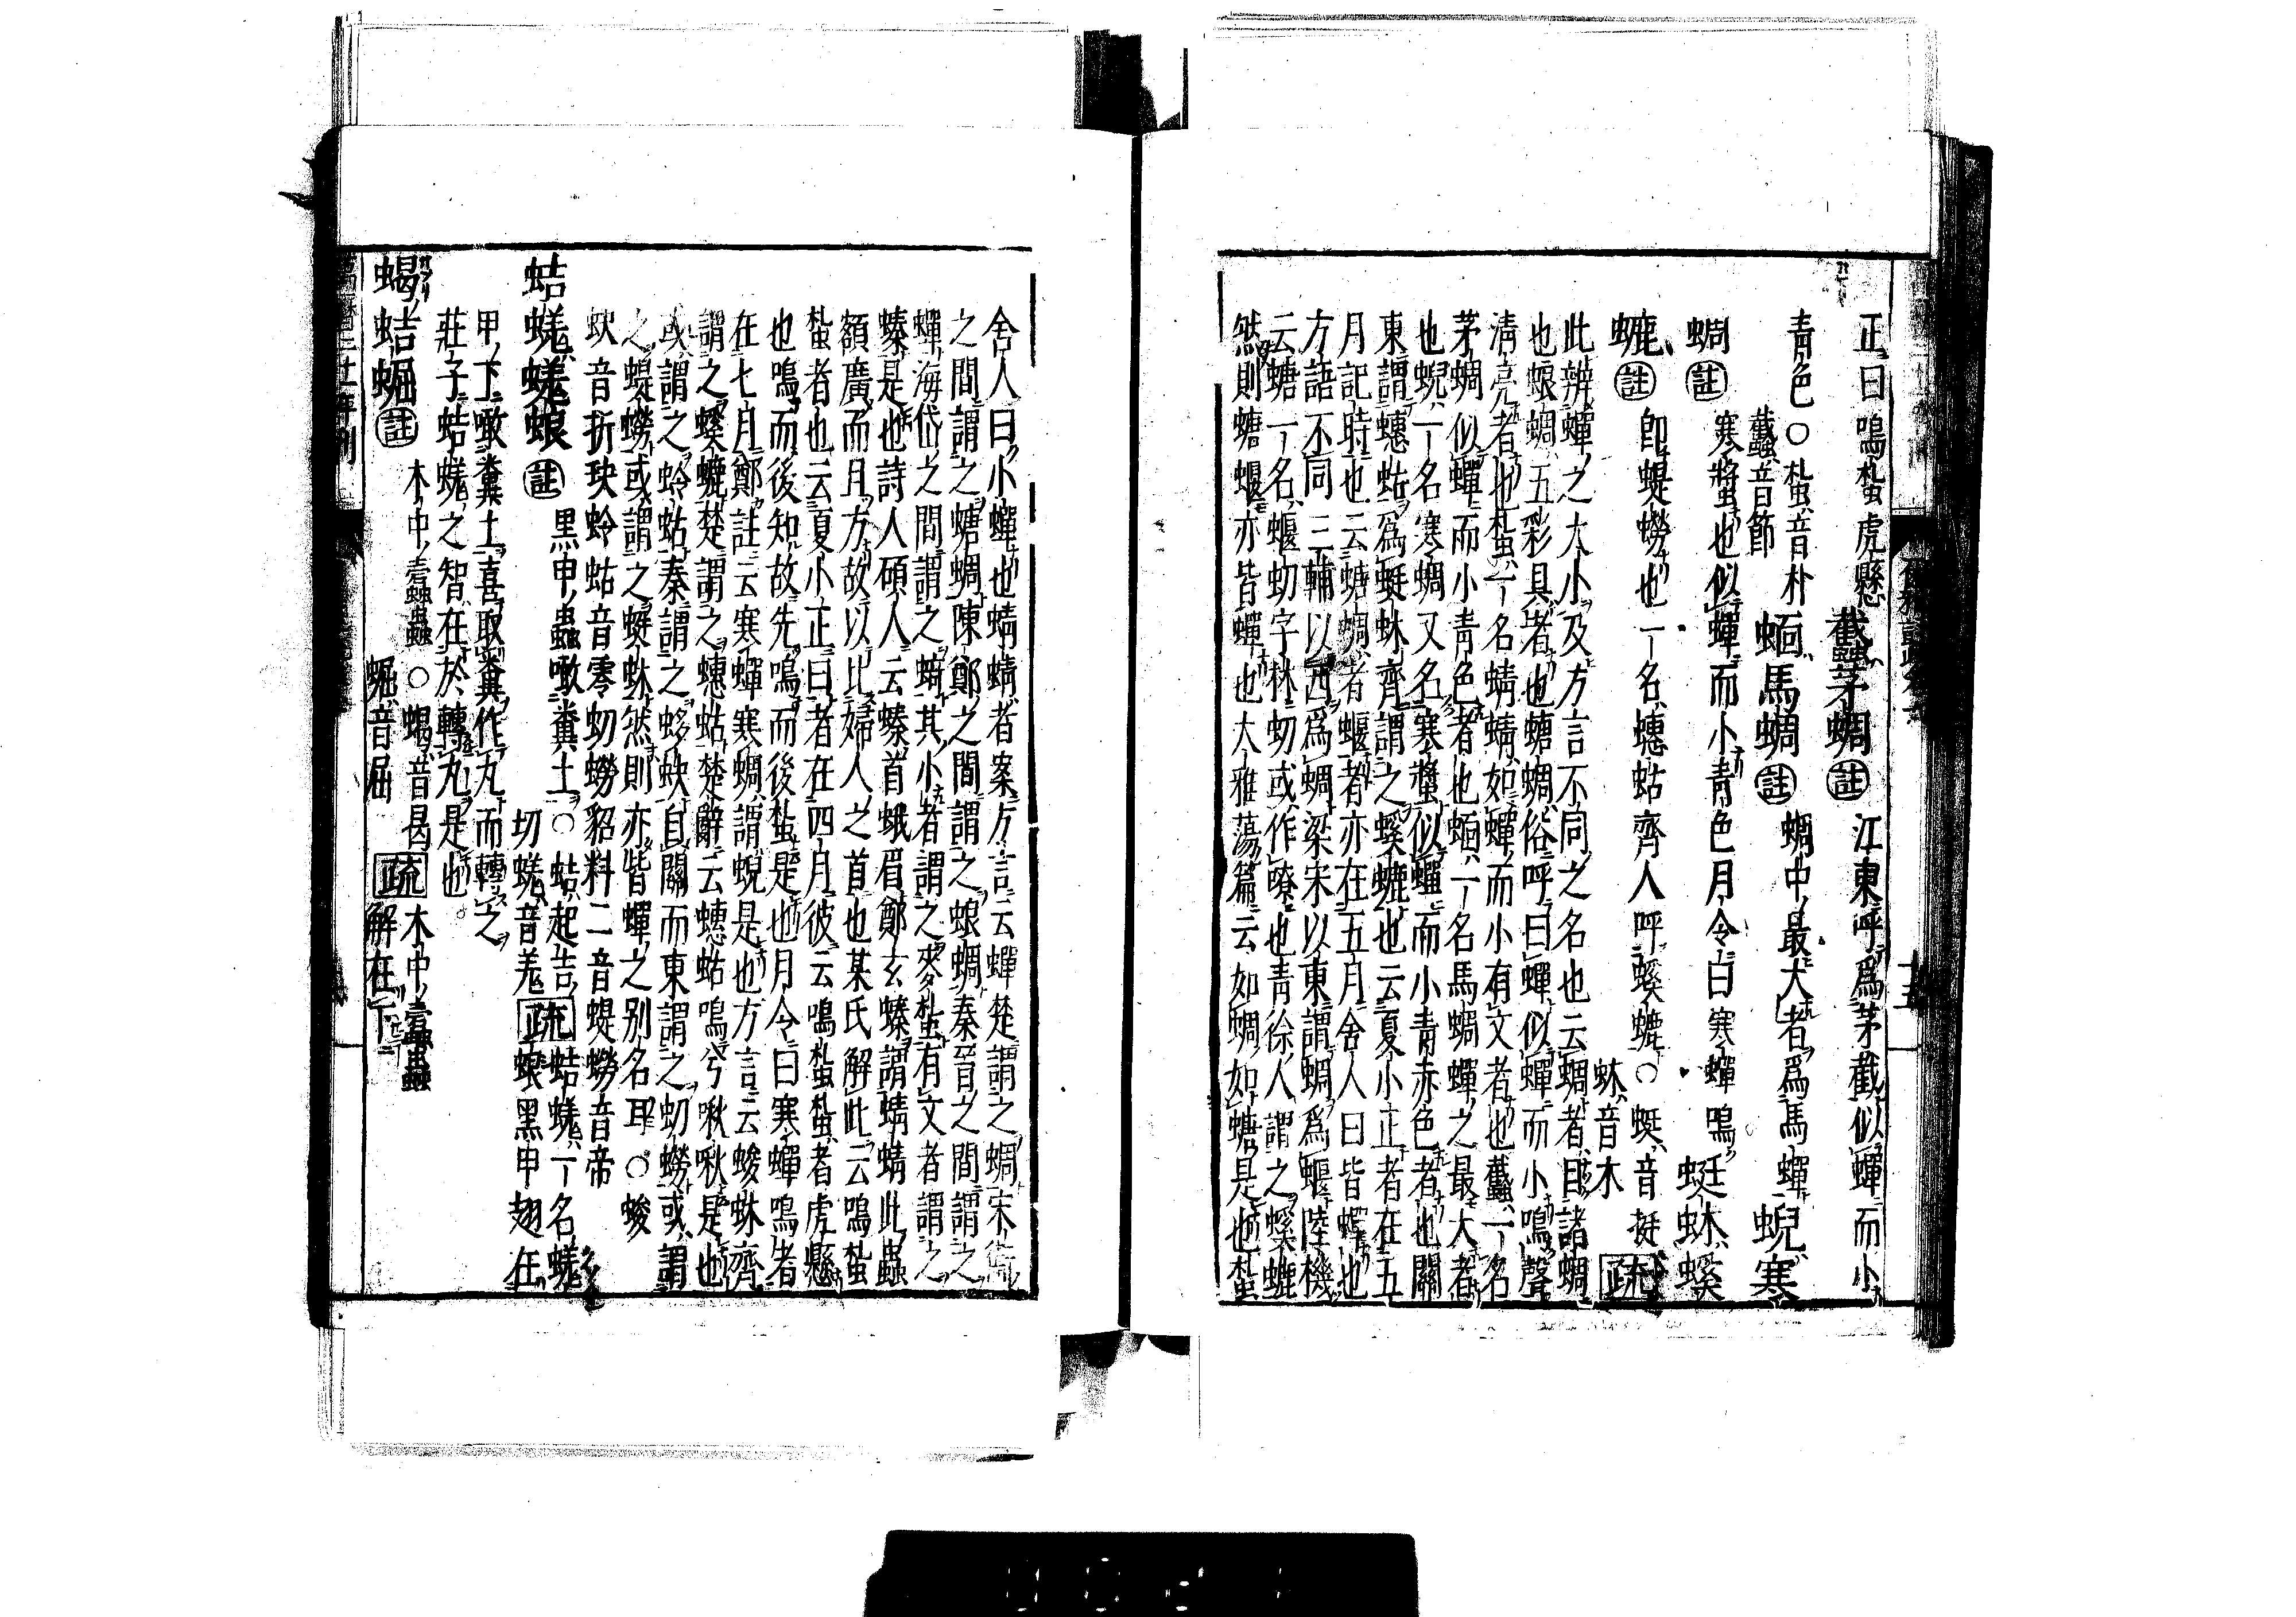 正曰鳴𧊿虎懸 蠽茅蜩 註 江東呼爲茅截似蟬而小
青色○𧊿音朴
蠽音節 蝒馬蜩 註 蜩中最大者爲馬蟬 蜺寒
蜩 註 寒螿也似蟬而小青色月令曰寒蟬鳴 蜓蚞螇
螰 註 卽蝭蟧也一名蟪蛄齊人呼螇螰○蜓音挺
蚞音木 疏
此辨蟬之大小及方言不同之名也云蜩者目諸蜩
也蜋蜩五彩具者也螗蜩俗呼曰蟬似蟬而小鳴聲
清亮者也𧊿一名蜻蜻如蟬而小有文者也蠽一名
茅蜩似蟬而小青色者也蝒一名馬蜩蟬之最大者
也蜺一名寒蜩又名寒螿似蟬而小青赤色者也關
東謂蟪蛄爲蜓蚞齊謂之螇螰也云夏小正者在五
月記時也云螗蜩者蝘者亦在五月舍人曰皆蟬也
方語不同三輔以西爲蜩梁宋以東謂蜩爲蝘陸機
云螗一名蝘虭字林虭或作蟟也青徐人謂之螇螰
然則螗蝘亦皆蟬也大雅蕩篇云如蜩如螗是也𧊿
舍人曰小蟬也蜻蜻者案方言云蟬楚謂之蜩宋衛
之間謂之螗蜩陳鄭之間謂之蜋蜩秦晉之間謂之
蟬海岱之間謂之蜻其小者謂之麥𧊿有文者謂之
螓是也詩人碩人云螓首蛾眉鄭玄螓謂蜻蜻此蟲
額廣而且方故以比婦人之首也某氏解此云鳴𧊿
𧊿者也云夏小正曰者在四月彼云鳴𧊿𧊿者虎懸
也鳴而後知故先鳴而後𧊿是也月令曰寒蟬鳴者
在七月鄭註云寒蟬寒蜩謂蜺是也方言云蛥蚗齊
謂之螇螰楚謂之蟪蛄楚辭云蟪蛄鳴兮啾啾是也
或謂之蛉蛄秦謂之蛥蚗自關而東謂之虭蟧或謂
之蝭蟧或謂之蜓蚞然則亦皆蟬之別名耳○蛥
蚗音折玦蛉蛄音零虭蟧貂料二音蝭蟧音帝
蛣蜣蜣蜋 註 黑甲蟲噉糞土○蛣起吉
切蜣音羌 疏 蛣蜣一名蜣
蜋黑甲翅在
甲下噉糞土喜取糞作丸而轉之
莊子蛣蜣之智在於轉丸是也
蝎蛣𧌑 註 木中蠹蟲○蝎音曷
𧌑音屈 疏 木中蠹蟲
解在下